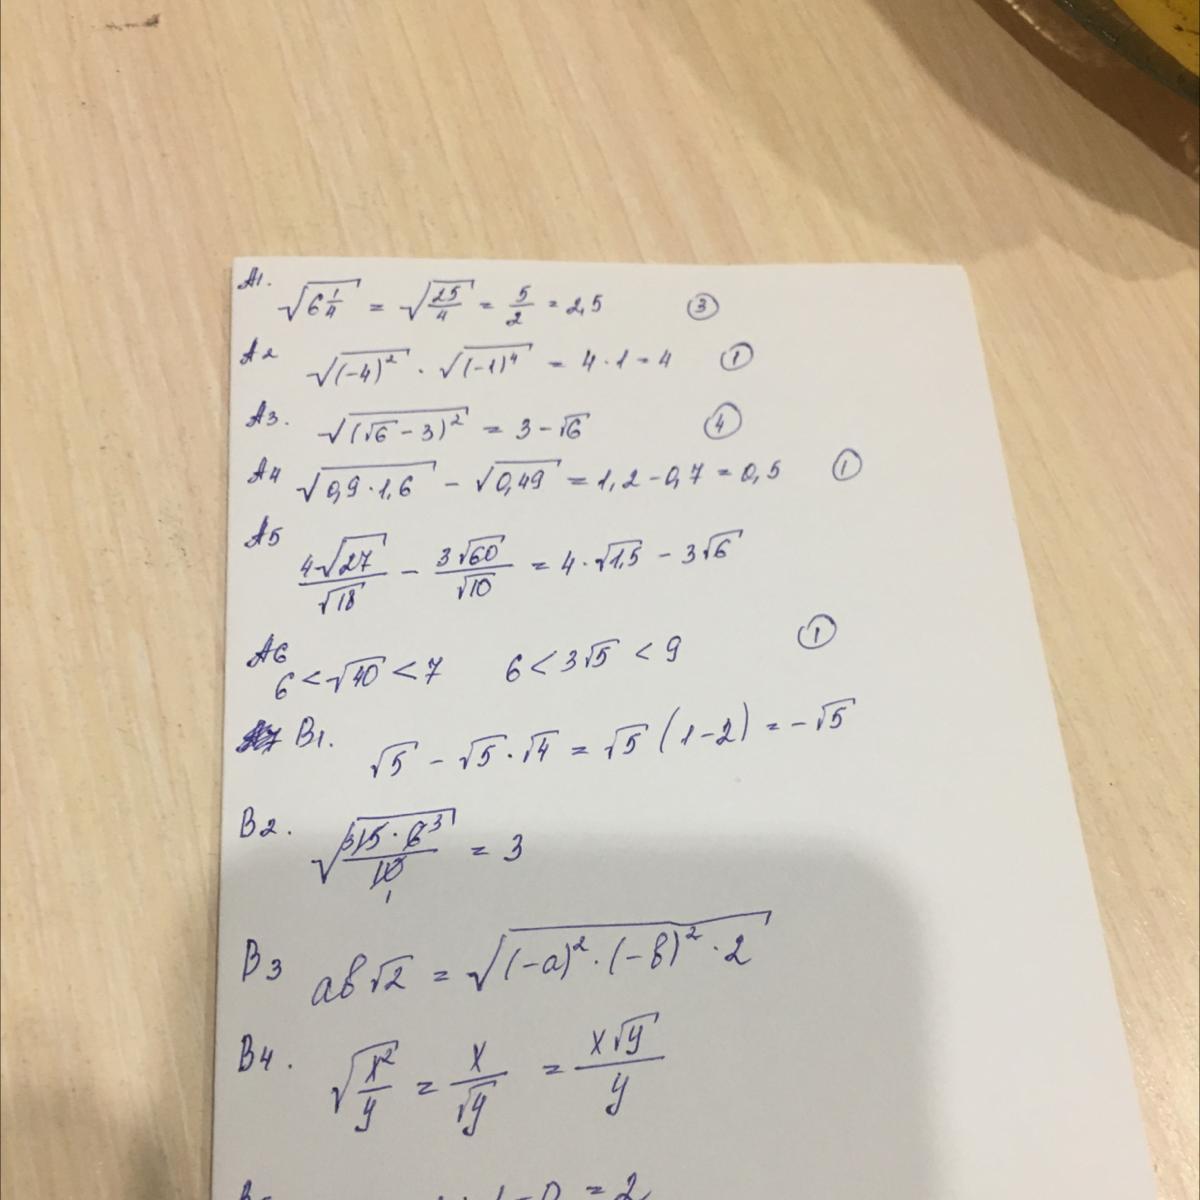 А1. √(6 1/4) = √(25/4) = 5/2 = 2,5 ③
А2 √((-4)²) · √((-1)⁴) = 4 · 1 = 4 ①
А3. √((√6 - 3)²) = 3 - √6 ④
А4 √(0,9 · 1,6) - √(0,49) = 1,2 - 0,7 = 0,5 ①
А5 4√27/√18 - 3√60/√10 = 4 · √1,5 - 3√6
А6 6 < √40 < 7 6 < 3√5 < 9 ①
В1. √5 - √5 · √4 = √5 (1 - 2) = -√5
В2. √(15 · 6/10) = 3
В3 ав√2 = √((-а)² · (-в)² · 2)
В4. √(x²/y) = x/√y = x√y/y
= 2